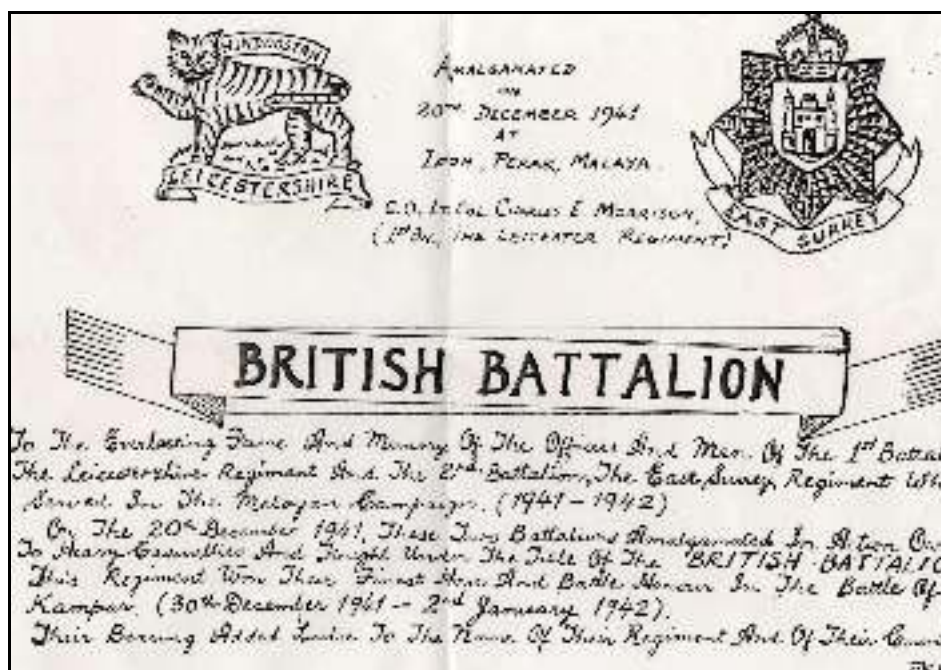 HINDOOSTAN
LEICESTERSHIRE
AMALGAMATED
ON
20TH DECEMBER 1941
AT
IPOH, PERAK, MALAYA.
C.O. LT. COL CHARLES E. MORRISON,
(1ST BN, THE LEICESTER REGIMENT)
EAST SURREY
BRITISH BATTALION
To The Everlasting Fame And Memory Of The Officers And Men Of The 1st Battal
The Leicestershire Regiment And The 2nd Battalion, The East Surrey Regiment Wh
Served In The Malayan Campaign. (1941 - 1942)
On The 20th December 1941, These Two Battalions Amalgamated In Action
To Heavy Casualties And Fought Under The Title Of The "BRITISH BATTALIO
This Regiment Won Their Finest Hour And Battle Honour In The Battle Of
Kampar. (30th December 1941 - 2nd January 1942).
Their Bearing Added To The Name Of Their Regiment And Of Their